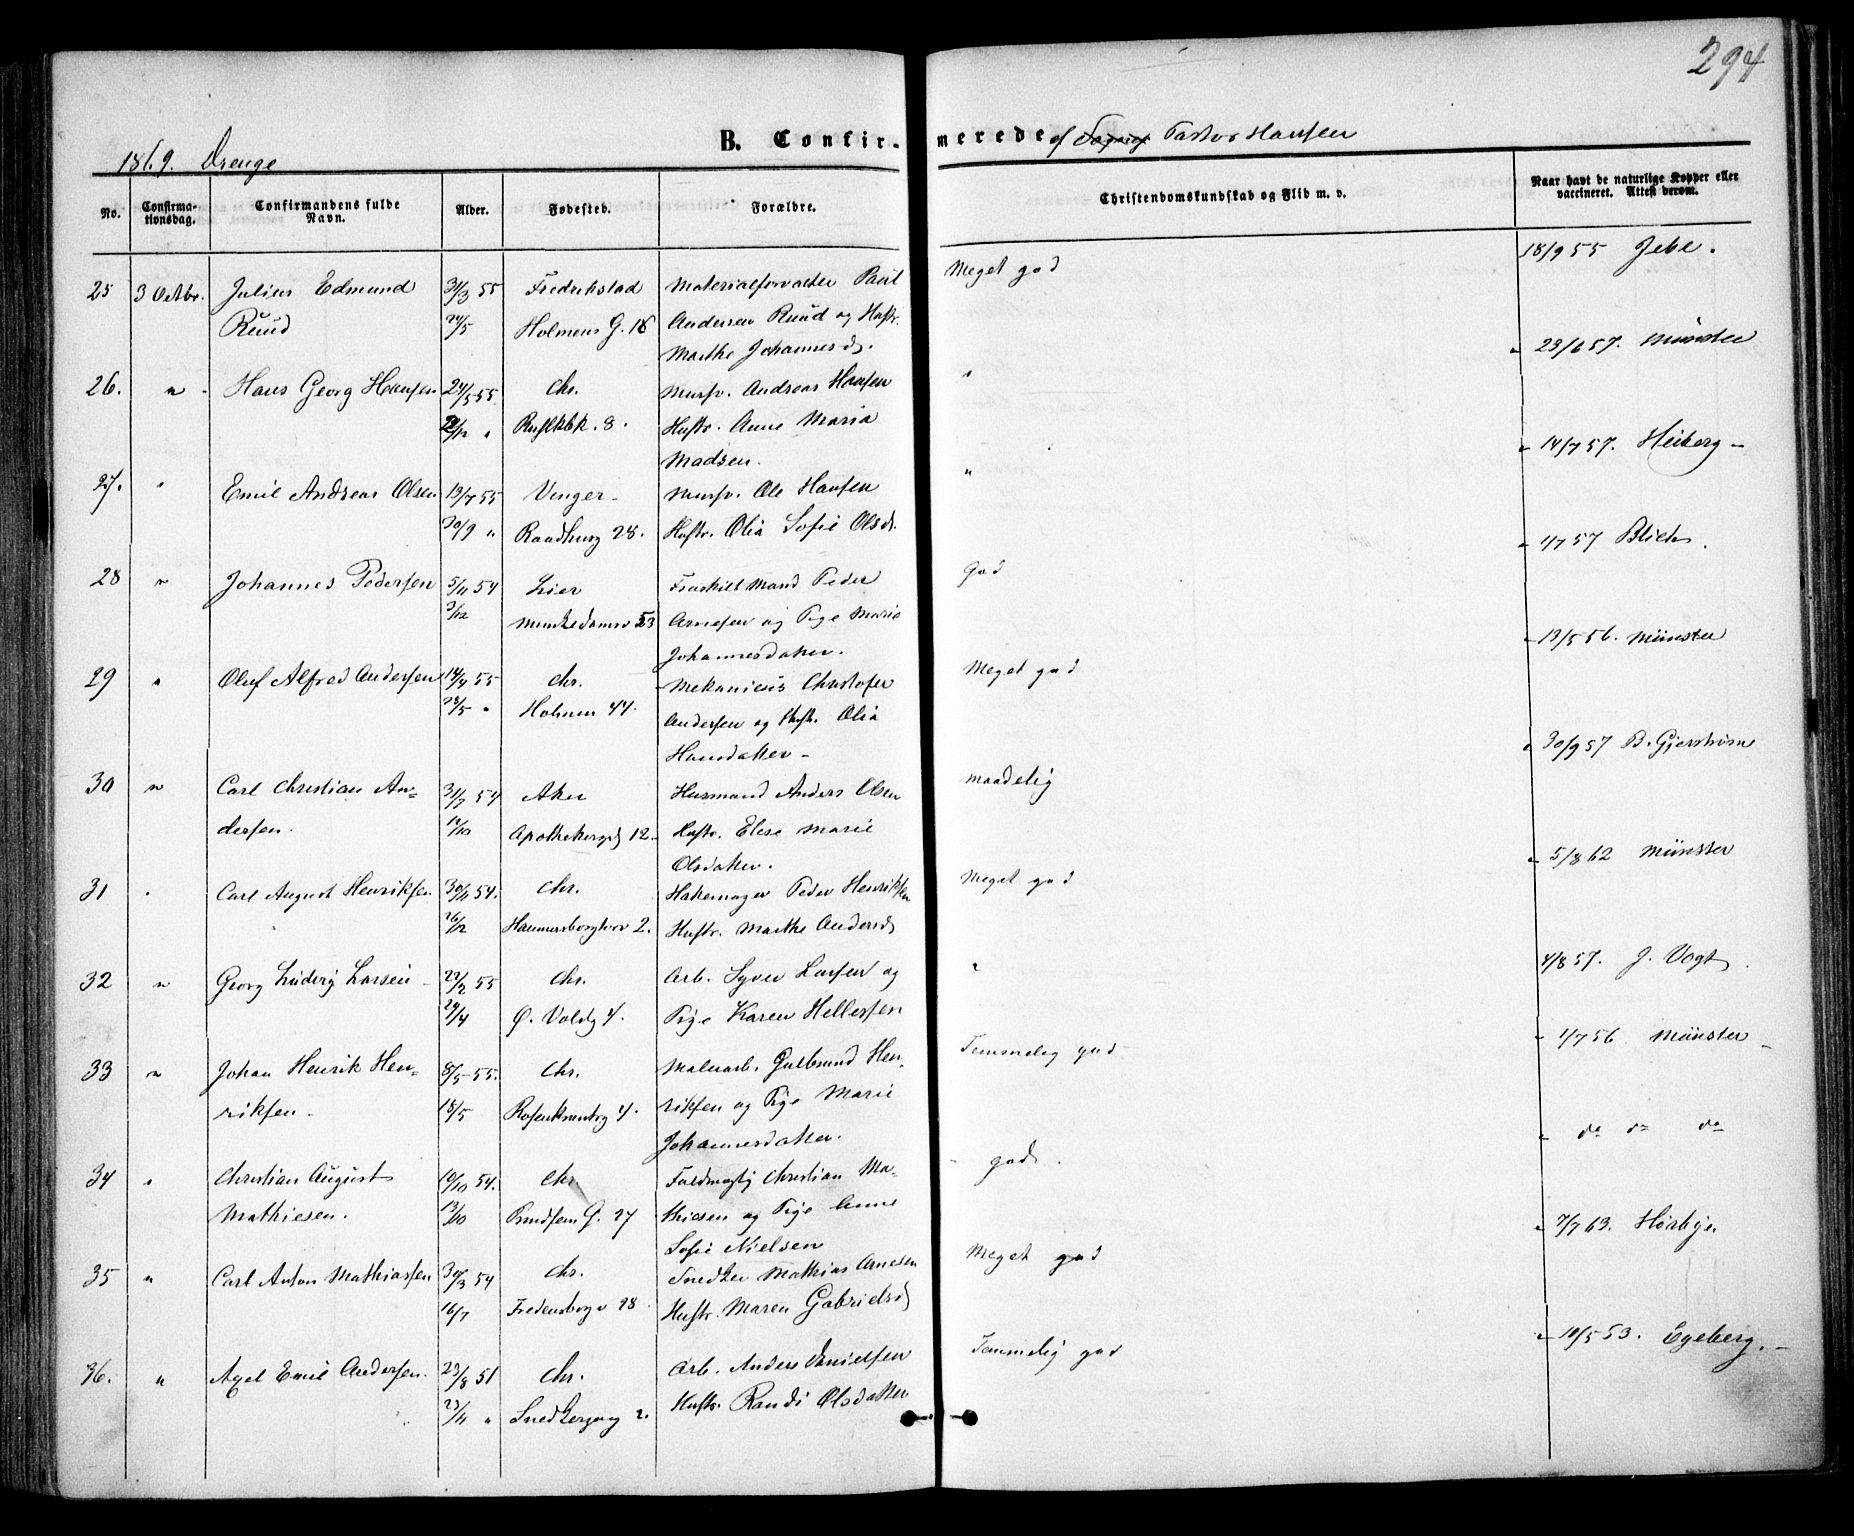 294
B. Confir-
merede af Pastor Hansen
1869. Drenge
No.
Confirma-
tionsdag.
Confirmandens fulde
Navn.
Alder.
Fødested.
Forældre.
Christendomskundskab og Flid m. v.
Naar havt de naturlige Kopper eller
vaccineret. Attest derom.
25 3 Octbr. Julius Edmund 31/3 55 Fredrikstad Materialforvalter Paul Meget god 18/9 55 Jebe.
Ruud 24/5 Holmens G. 18 Andersen Ruud og Hustr.
Marthe Johannesd.
26. " Hans Georg Hansen 24/5 55 Chr. Mursv. Andreas Hansen " " 23/6 57. Münster
/12 " 8. Hustr. Anne Maria
Madsen.
27. " Emil Andreas Olsen 13/7 55 Vinger Mursv. Ole Hansen " " 14/7 57. Heiberg
30/9 " Raadhusg 28. Hustr. Olia Sofie Olsd.
28 " Johannes Pedersen 5/11 54 Lier Fraskilt Mand Peder God " 4/7 57 Blich.
3/12 Munkedamsv 53 Arnesen og Pige Marie
Johannesdatter.
29 " Oluf Alfred Andersen 14/4 55 Chr. Mekanicus Christofer Meget god " 13/5 56. Münster
28/5 " Holmen 44. Andersen og Hustr. Olia
Hansdatter
30 " Carl Christian An- 31/7 54 Aker Husmand Anders Olsen maadelig " 30/9 57 B. Gjerstrøm
dersen. /10 Apothekergd 12 Hustr. Elise Marie
Olsdatter.
31 " Carl August Henriksen 30/11 54. Chr. Hakemager Peder Henriksen Meget god " 5/8 62 Münster
26/12 Hammersborgtorv 2. Hustr. Marthe Andersd
32 " Georg Ludvig Larsen 22/2 55 Chr. Arb. Syver Larsen og " 4/8 57. J. Vogt.
29/4 Ø. Voldg 4. Pige Karen Hellessen
33 " Johan Henrik Hen- 8/5 55. Chr. Malerarb. Gulbrand Hen- Temmelig god " 4/7 56. Münster
riksen 18/5 Rosenkrantzg 4. riksen og Pige Marie
Johannesdatter.
34 " Christian August 10/10 54. Chr. Fuldmægtig Christian Ma- god. " do do do
Mathiesen. 13/10 G. 27 thiesen og Pige Anne
Sofie Nielsen
35 " Carl Anton Mathiassen 30/3 54 Chr. Snedker Mathias Arnesen Meget god " 7/7 63. Hørbye.
16/7 Fredensborgv 28 Hustr. Maren Gabrielsd
36. " Axel Emil Andersen. 23/8 51 Chr. Arb. Anders Danielsen Temmelig god " 10/5 53. Egeberg.
23/11 " Snedkergang 2. Hustr. Randi Olsdatter